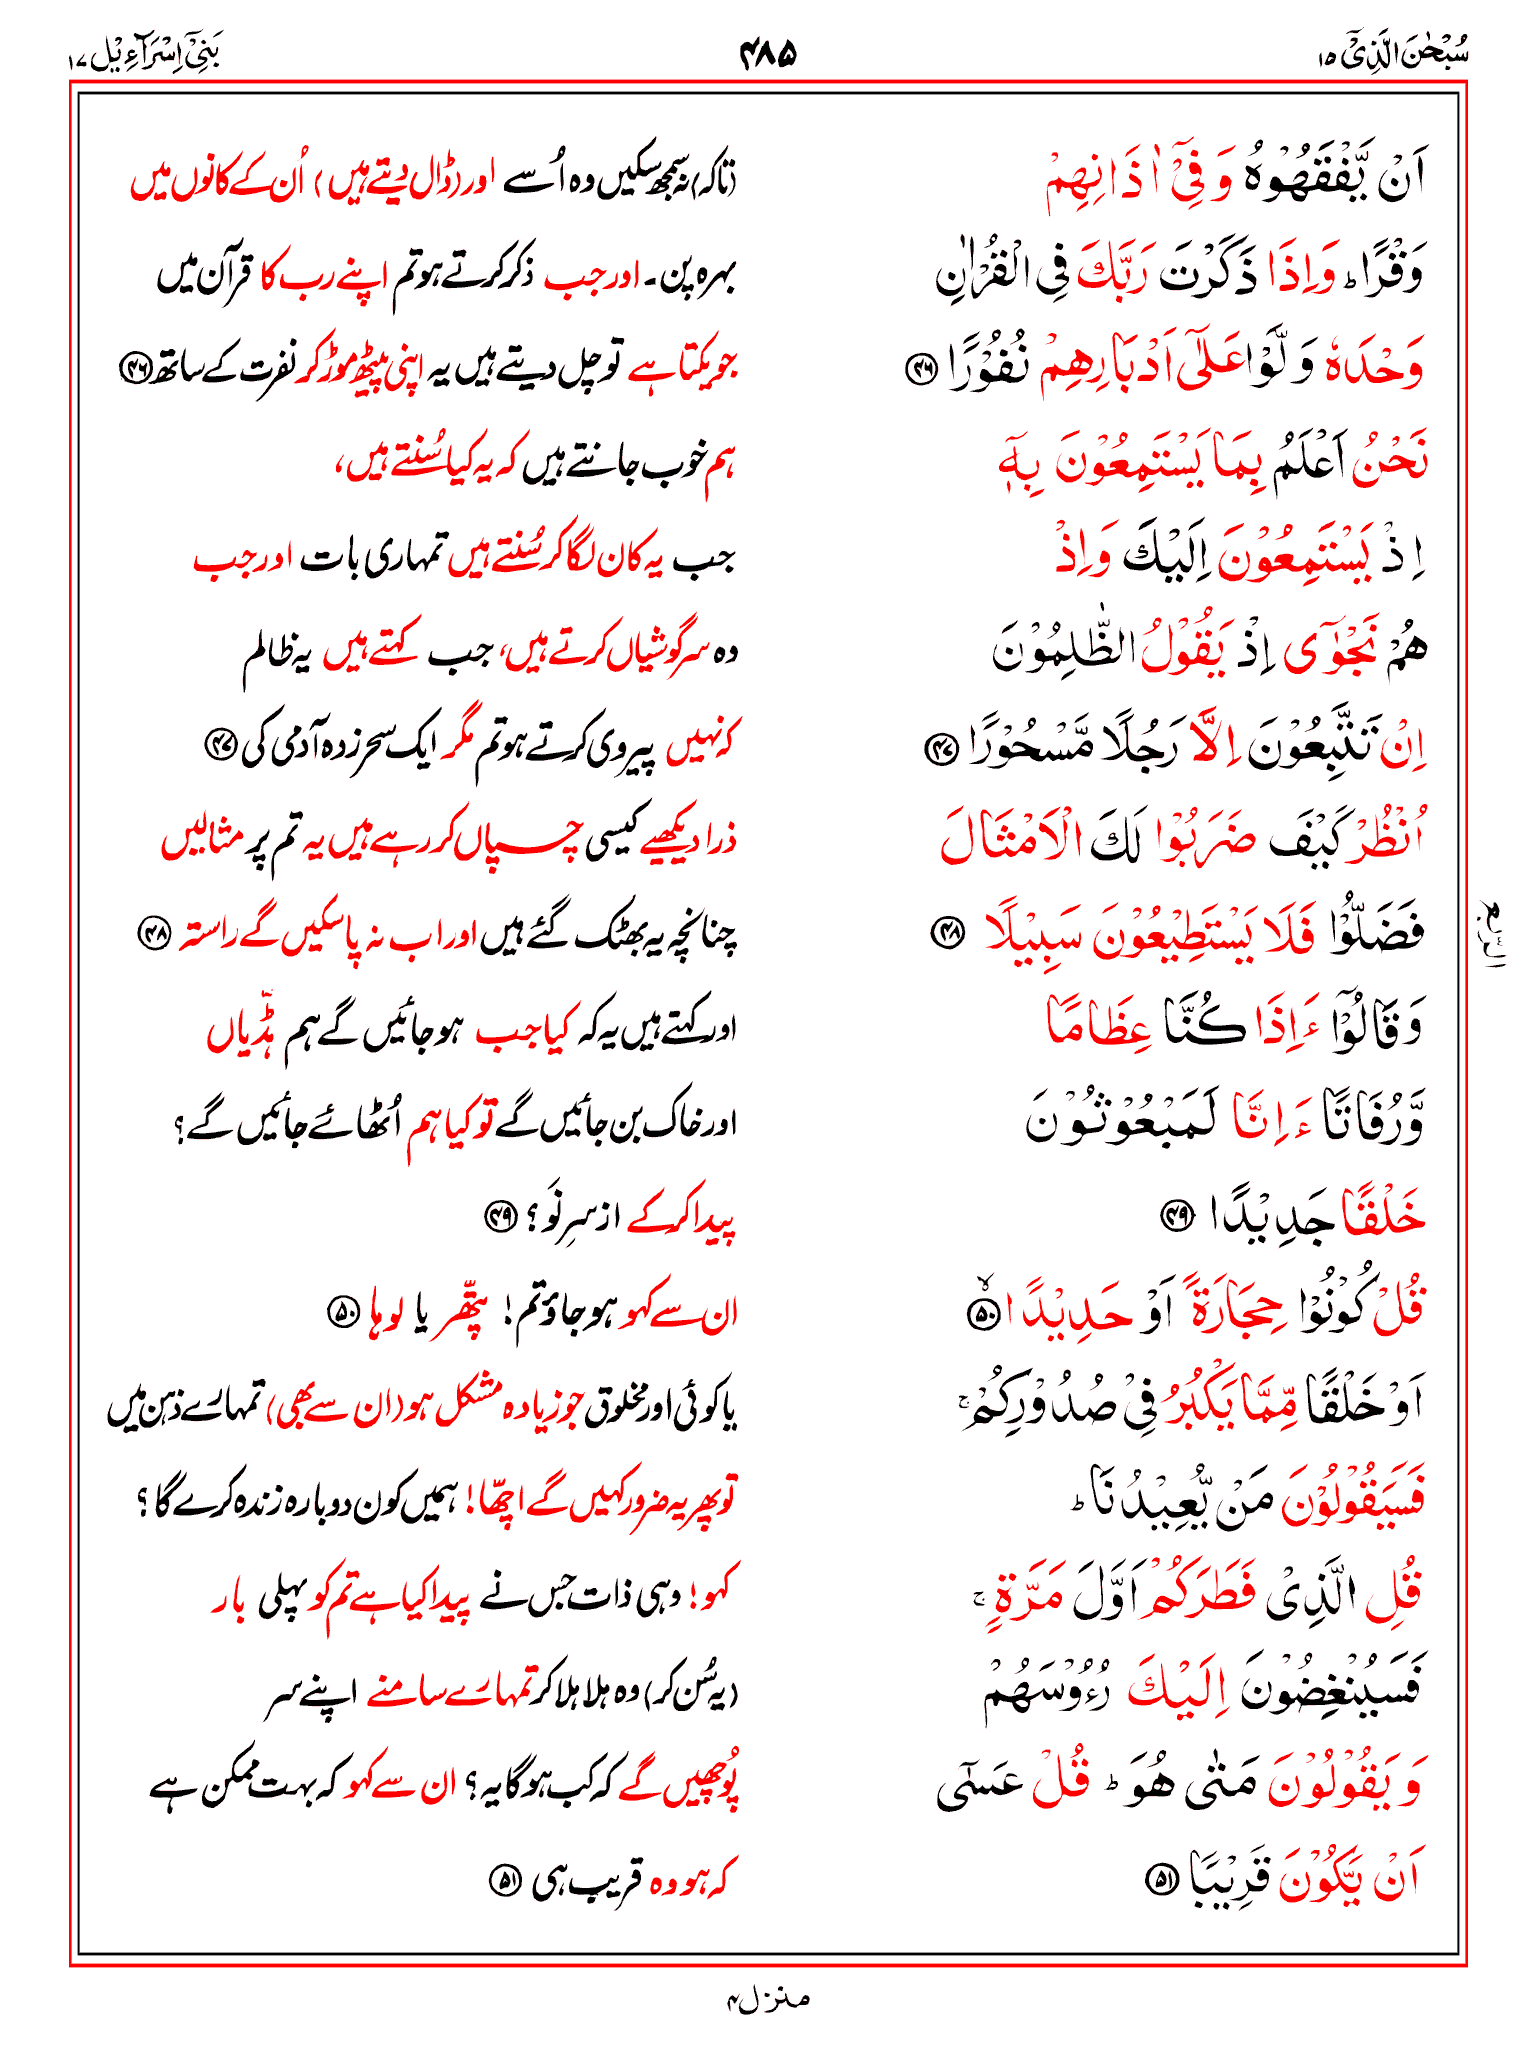 سُبْحٰنَ الَّذِیْۤ ۱۵
۴۸۵
بَنِیْۤ اِسْرَآءِیْل ۱۷
اَنْ یَّفْقَهُوْهُ وَ فِیْۤ اٰذَانِهِمْ
(تاکہ) نہ سمجھ سکیں وہ اُسے اور (ڈال دیتے ہیں) اُن کے کانوں میں
وَقْرًا ؕ وَ اِذَا ذَكَرْتَ رَبَّكَ فِی الْقُرْاٰنِ
بہرہ پن۔ اور جب ذکر کرتے ہو تم اپنے رب کا قرآن میں
وَحْدَهٗ وَلَّوْا عَلٰۤی اَدْبَارِهِمْ نُفُوْرًا ۴۶
جو یکتا ہے تو چل دیتے ہیں یہ اپنی پیٹھ موڑ کر نفرت کے ساتھ ۴۶
نَحْنُ اَعْلَمُ بِمَا یَسْتَمِعُوْنَ بِهٖۤ
ہم خوب جانتے ہیں کہ یہ کیا سُنتے ہیں،
اِذْ یَسْتَمِعُوْنَ اِلَیْكَ وَ اِذْ
جب یہ کان لگا کر سُنتے ہیں تمہاری بات اور جب
هُمْ نَجْوٰۤی اِذْ یَقُوْلُ الظّٰلِمُوْنَ
وہ سرگوشیاں کرتے ہیں، جب کہتے ہیں یہ ظالم
اِنْ تَتَّبِعُوْنَ اِلَّا رَجُلًا مَّسْحُوْرًا ۴۷
کہ نہیں پیروی کرتے ہو تم مگر ایک سحر زدہ آدمی کی ۴۷
اُنْظُرْ كَیْفَ ضَرَبُوْا لَكَ الْاَمْثَالَ
ذرا دیکھیے کیسی چسپاں کر رہے ہیں یہ تم پر مثالیں
فَضَلُّوْا فَلَا یَسْتَطِیْعُوْنَ سَبِیْلًا ۴۸
چنانچہ یہ بھٹک گئے ہیں اور اب نہ پا سکیں گے راستہ ۴۸
الرّبع
وَ قَالُوْۤا ءَاِذَا كُنَّا عِظَامًا
اور کہتے ہیں یہ کہ کیا جب ہو جائیں گے ہم ہڈّیاں
وَّ رُفَاتًا ءَاِنَّا لَمَبْعُوْثُوْنَ
اور خاک بن جائیں گے تو کیا ہم اُٹھائے جائیں گے؟
خَلْقًا جَدِیْدًا ۴۹
پیدا کر کے از سرِ نَو؟ ۴۹
قُلْ كُوْنُوْا حِجَارَةً اَوْ حَدِیْدًا ۵۰
ان سے کہو ہو جاؤ تم! پتّھر یا لوہا ۵۰
اَوْ خَلْقًا مِّمَّا یَكْبُرُ فِیْ صُدُوْرِكُمْ ۚ
یا کوئی اور مخلوق جو زیادہ مشکل ہو (ان سے بھی) تمہارے ذہن میں
فَسَیَقُوْلُوْنَ مَنْ یُّعِیْدُنَا ؕ
تو پھر یہ ضرور کہیں گے اچھّا! ہمیں کون دوبارہ زندہ کرے گا؟
قُلِ الَّذِیْ فَطَرَكُمْ اَوَّلَ مَرَّةٍ ۚ
کہو! وہی ذات جس نے پیدا کیا ہے تم کو پہلی بار
فَسَیُنْغِضُوْنَ اِلَیْكَ رُءُوْسَهُمْ
(یہ سُن کر) وہ ہلا ہلا کر تمہارے سامنے اپنے سر
وَ یَقُوْلُوْنَ مَتٰی هُوَ ؕ قُلْ عَسٰۤی
پُوچھیں گے کہ کب ہو گا یہ؟ ان سے کہو کہ بہت ممکن ہے
اَنْ یَّكُوْنَ قَرِیْبًا ۵۱
کہ ہو وہ قریب ہی ۵۱
منزل ۴